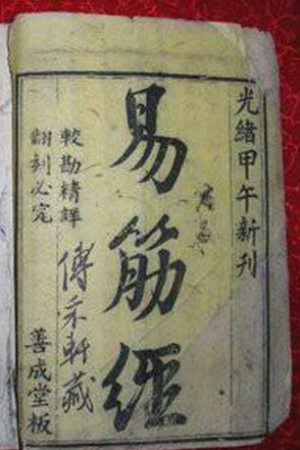 光緒甲午新刊
易筋經
較勘精詳
翻刻必究
傅禾軒藏
善成堂板